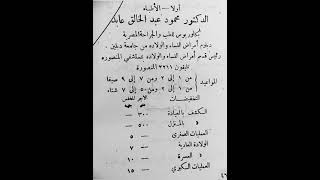 أولا - الأطباء
الدكتور محمود عبد الخالق عابد
بكالوريوس الطب والجراحة المصرية
دبلوم أمراض النساء والولادة من جامعة دبلين
رئيس قسم أمراض النساء والولادة بمستشفى المنصورة
تليفون ٢٢١١ المنصورة
المواعيد
من ١ إلى ٢ ومن ٧ إلى ٩ صيفا
من ١ إلى ٢ ومن ٥ إلى ٧ شتاء
التخفيضات الأجر المخفض
الكشف بالعيادة ٣٠٠ —
» بالمنزل ٥٠٠ —
العمليات الصغرى — ٥
الولادة العادية — ٧
» العسرة — ١٠
العمليات الكبرى — ١٥